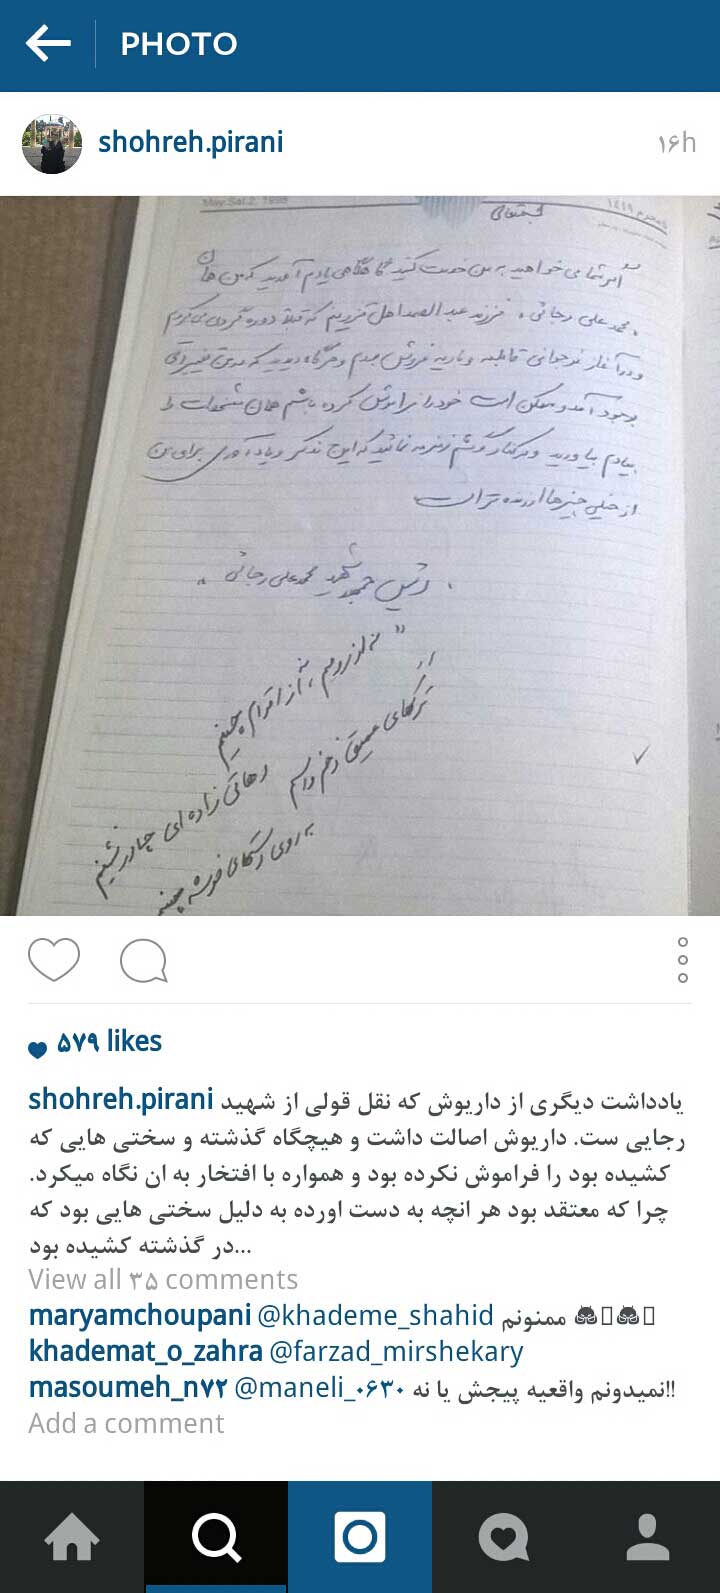 PHOTO
shohreh.pirani
۱۶h
May.Sat.2. 1998
اگر شما می خواهید به من خدمت کنید گاهگاهی یادم آورید که من همان
محمد علی رجائی، فرزند عبدالصمد اهل قزوینم که قبلاً دوره گردی می کردم
و در آغاز نوجوانی قابلمه و بادیه فروش بودم و هرگاه دیدید که در من تغییراتی
بوجود آمد و ممکن است خود را فراموش کرده باشم همان مشخصات را
بیادم بیاورید و در کنار گوشم زمزمه نمائید که این تذکر و یادآوری برای من
از خیلی چیزها ارزنده تر است
، رئیس جمهور شهید محمد علی رجائی "
" نه از رومم، نه از اقوام چینم
دهاتی زاده ای چادرنشینم
ترکهای عمیق زخم دارم
به روی دستهای خوشه چینم
۵۷۹ likes
shohreh.pirani یادداشت دیگری از داریوش که نقل قولی از شهید
رجایی ست. داریوش اصالت داشت و هیچگاه گذشته و سختی هایی که
کشیده بود را فراموش نکرده بود و همواره با افتخار به ان نگاه میکرد.
چرا که معتقد بود هر انچه به دست اورده به دلیل سختی هایی بود که
در گذشته کشیده بود...
View all ۳۵ comments
maryamchoupani @khademe_shahid ممنونم
khademat_o_zahra @farzad_mirshekary
masoumeh_n۷۲ @maneli_۰۶۳۰ نمیدونم واقعیه پیجش یا نه!!
Add a comment